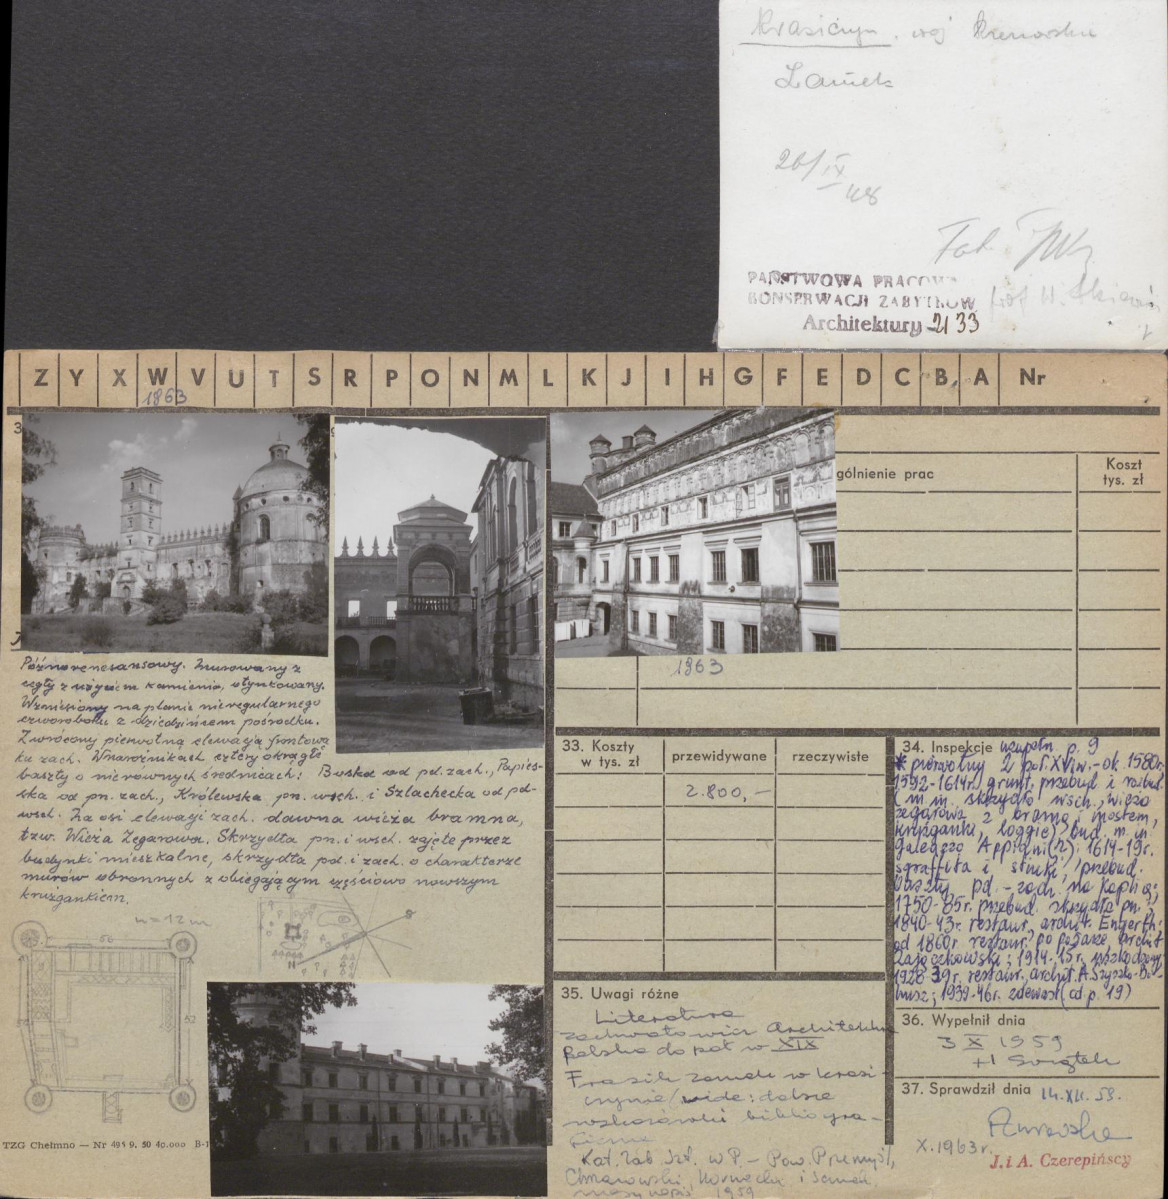 Krasiczyn. woj Rzeszowskie
Zamek
26/IX 48
Fot.
PAŃSTWOWA PRACOW
KONSERWACJI ZABYTKÓW
Architektury 2133
Z Y X W V U T S R P O N M L K J I H G F E D C B A Nr
1863
gólnienie prac
Koszt
tys. zł
1863
Późnorenesansowy. Murowany z
cegły z użyciem kamienia, otynkowany.
Wzniesiony na planie nieregularnego
czworoboku z dziedzińcem pośrodku.
Zwrócony pierwotną elewacją frontową
ku zach. W narożnikach cztery okrągłe
baszty o nierównych średnicach: Boska od pd. zach., Papies-
ska od pn. zach., Królewska pn. wsch. i Szlachecka od pd-
wsch. Na osi elewacji zach. dawna wieża bramna,
tzw. Wieża Zegarowa. Skrzydła pn. i wsch. zajęte przez
budynki mieszkalne, skrzydła pd. i zach. o charakterze
murów obronnych z obiegającym częściowo nowszym
krużgankiem.
n = 12 m
56
52
N
S
TZG Chełmno — Nr 491 9. 50 40.000 B-1
33. Koszty
w tys. zł
przewidywane
rzeczywiste
2.800,-
34. Inspekcje uzupełn p. 9
* pierwotny 2 poł. XVI w. - ok. 1580r.
1592-1614r. grunt. przebud i rozbud.
(m.in. skrzydło wsch., wieża
zegarowa z bramą i mostem,
krużganki, loggie) bud. m. in.
Galeazzo Appiani(?); 1614-19r.
sgraffita i stiuki, przebud.
baszty pd.-zach. na kaplicę;
1750-85r. przebud. skrzydła pn.;
1840-43r. restaur. archit. Engerth;
od 1860r restaur. po pożarze archit
1914-15r. uszkodzony;
1928-39r. restaur. archit. A. Szyszko-Bo-
husz; 1939-46r. zdewast (cd p. 19)
35. Uwagi różne
Literatura
Zachwatowicz Architektura
Polska do poł w XIX
Frazik zamek w Krasi-
czynie / wide: dalsze
wskazówki bibliogra-
ficzne
Kat. Zab. Szt. w P. - Pow. Przemyśl,
Chrzanowski, Kornecki i Samek,
maszynopis 1959
36. Wypełnił dnia
3 X 1959
+1 Świątek
37. Sprawdził dnia 14.XII.59.
X.1963r.
J. i A. Czerepińscy